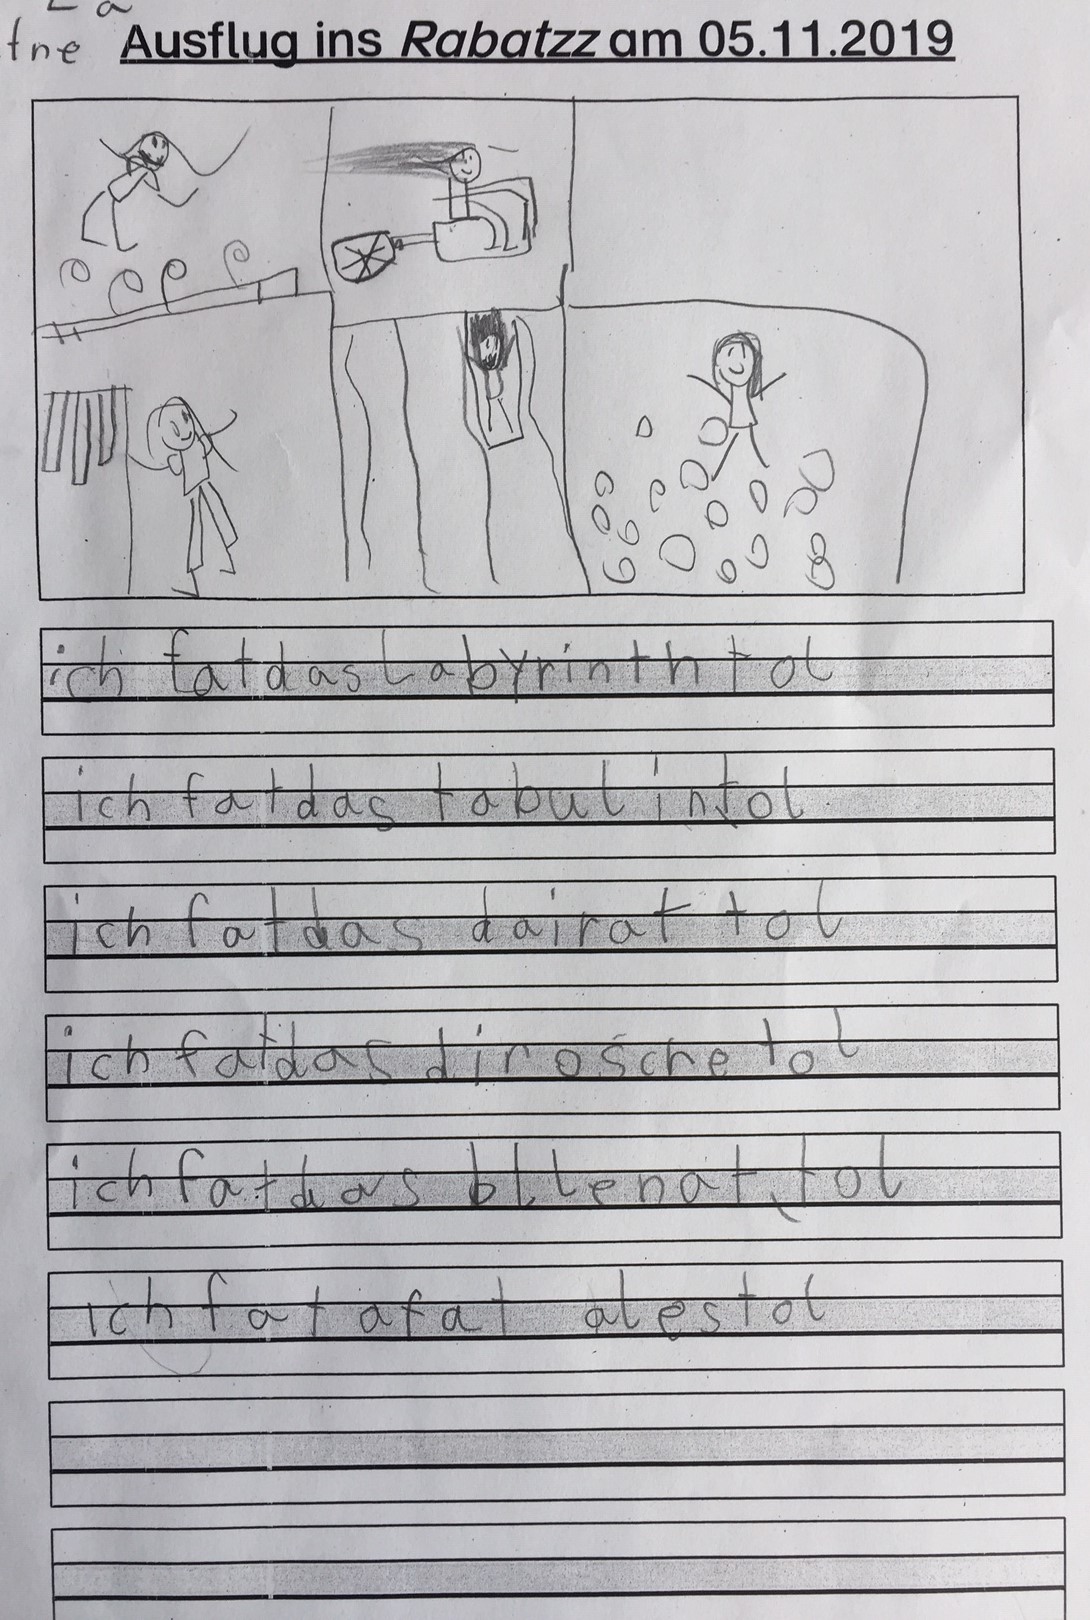 La
tne Ausflug ins Rabatzz am 05.11.2019
ich fatdas Labyrinth tol
ich fatdas tabulintol
ich fatdas dairat tol
ich fatdas dirosche tol
ich fatdas bllenat tol
ich fat afat alestol